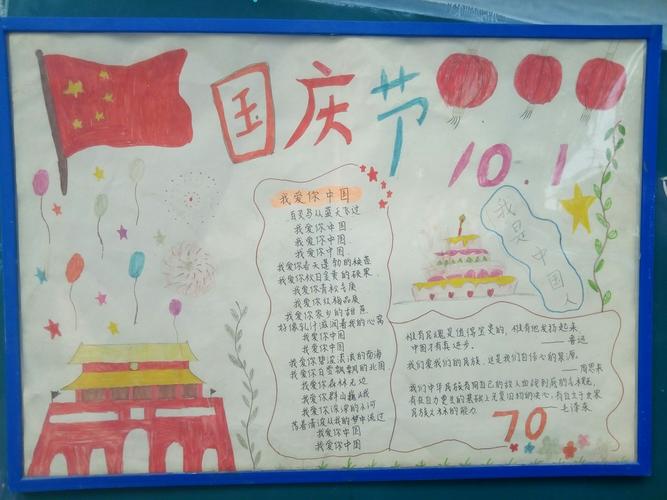 国庆节
10.1
我是中国人
我爱你中国
百灵鸟从蓝天飞过
我爱你中国
我爱你中国
我爱你中国
我爱你春天蓬勃的秧苗
我爱你秋日金黄的硕果
我爱你青松气质
我爱你红梅品质
我爱你家乡的甜蔗
好像乳汁滋润着我的心窝
我爱你中国
我爱你中国
我爱你碧波滚滚的南海
我爱你白雪飘飘的北国
我爱你森林无边
我爱你群山巍峨
我爱你淙淙的小河
荡着清波从我的梦中流过
我爱你中国
我爱你中国
惟有民魂是值得宝贵的,惟有他发扬起来,
中国才有真进步。
——鲁迅
我们爱我们的民族,这是我们自信心的泉源。
——周恩来
我们中华民族有同自己的敌人血战到底的气概,
有在自力更生的基础上光复旧物的决心,有自立于世界
民族之林的能力
——毛泽东
70